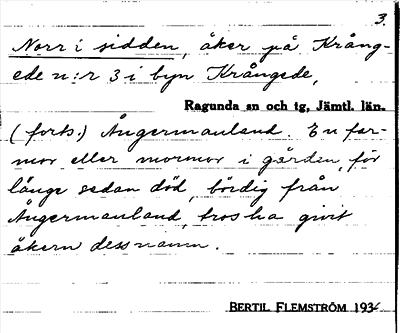 3.
Norr i sidden, åker på Krång-
ede n:r 3 i byn Krångede,
Ragunda sn och tg, Jämtl. län.
(forts.) Ångermanland. En far-
mor eller mormor i gården, för
länge sedan död, bördig från
Ångermanland, tros ha givit
åkern dess namn.
BERTIL FLEMSTRÖM 1936